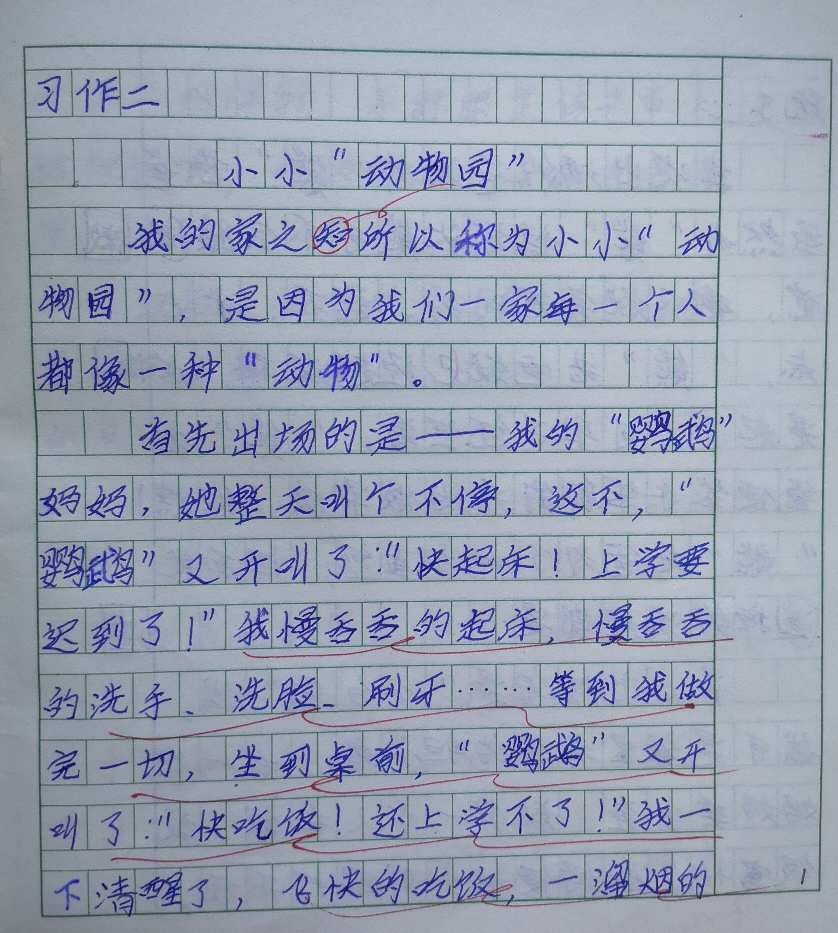 习作二
小小“动物园”
我的家之所以称为小小“动
物园”，是因为我们一家每一个人
都像一种“动物”。
首先出场的是——我的“鹦鹉”
妈妈，她整天叫个不停，这不，“
鹦鹉”又开叫了：“快起床！上学要
迟到了！”我慢吞吞的起床，慢吞吞
的洗手、洗脸、刷牙……等到我做
完一切，坐到桌前，“鹦鹉”又开
叫了：“快吃饭！还上学不了！”我一
下清醒了，飞快的吃饭，一溜烟的
1